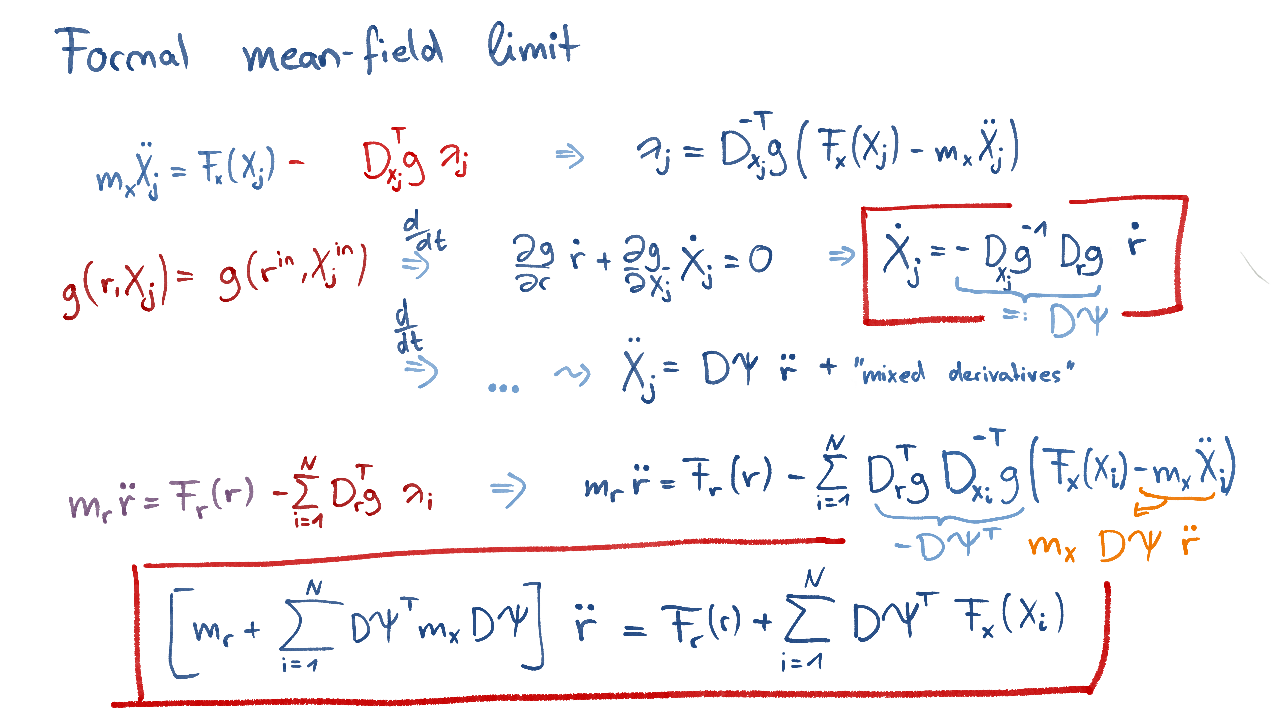 Formal mean-field limit
m_x Ẍ_j = F_x(X_j) - D_{x_j}^T g λ_j ⇒ λ_j = D_{x_j}^{-T} g (F_x(X_j) - m_x Ẍ_j)
g(r, X_j) = g(r^{in}, X_j^{in}) d/dt ⇒ ∂g/∂r ṙ + ∂g/∂X_j Ẋ_j = 0 ⇒ Ẋ_j = - D_{x_j} g^{-1} D_r g ṙ
=: DΨ
d/dt ⇒ ... ⇝ Ẍ_j = DΨ r̈ + "mixed derivatives"
m_r r̈ = F_r(r) - ∑_{i=1}^N D_r^T g λ_i ⇒ m_r r̈ = F_r(r) - ∑_{i=1}^N D_r^T g D_{x_i}^{-T} g (F_x(X_i) - m_x Ẍ_i)
-DΨ^T m_x DΨ r̈
[m_r + ∑_{i=1}^N DΨ^T m_x DΨ] r̈ = F_r(r) + ∑_{i=1}^N DΨ^T F_x(X_i)